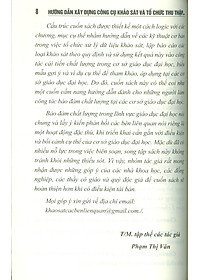 8 HƯỚNG DẪN XÂY DỰNG CÔNG CỤ KHẢO SÁT VÀ TỔ CHỨC THU THẬP,
Cấu trúc cuốn sách được thiết kế một cách logic với các
chương, mục cụ thể nhằm hướng dẫn về các kỹ thuật cơ bản
trong việc tổ chức xử lý dữ liệu khảo sát, lập báo cáo các
loại khảo sát theo quy định và sử dụng kết quả này vào công
tác cải tiến chất lượng trong cơ sở giáo dục đại học, biểu
mẫu gợi ý và ví dụ cụ thể để tham khảo, áp dụng tại các cơ
sở giáo dục đại học. Do đó, cuốn sách này có thể coi như
một cuốn cẩm nang hướng dẫn những người làm công tác
đảm bảo chất lượng trong các cơ sở giáo dục đại học.
Bảo đảm chất lượng trong lĩnh vực giáo dục đại học nói
chung và lấy ý kiến phản hồi các bên liên quan nói riêng là
một hoạt động đặc thù, khi triển khai cần gắn với điều kiện và
bối cảnh cụ thể của cơ sở giáo dục đại học. Mặc dù đã có
nhiều nỗ lực trong việc biên soạn, song tập sách này không
tránh khỏi những thiếu sót. Vì vậy, nhóm tác giả rất mong
nhận được những góp ý của các nhà khoa học, các đồng
nghiệp, các thầy cô giáo và quý độc giả để cuốn sách được
hoàn thiện hơn khi có điều kiện tái bản.
Mọi góp ý xin gửi về địa chỉ email:
khaosatcacbenlienquan@gmail.com./.
T/M. tập thể các tác giả
Phạm Thị Vân